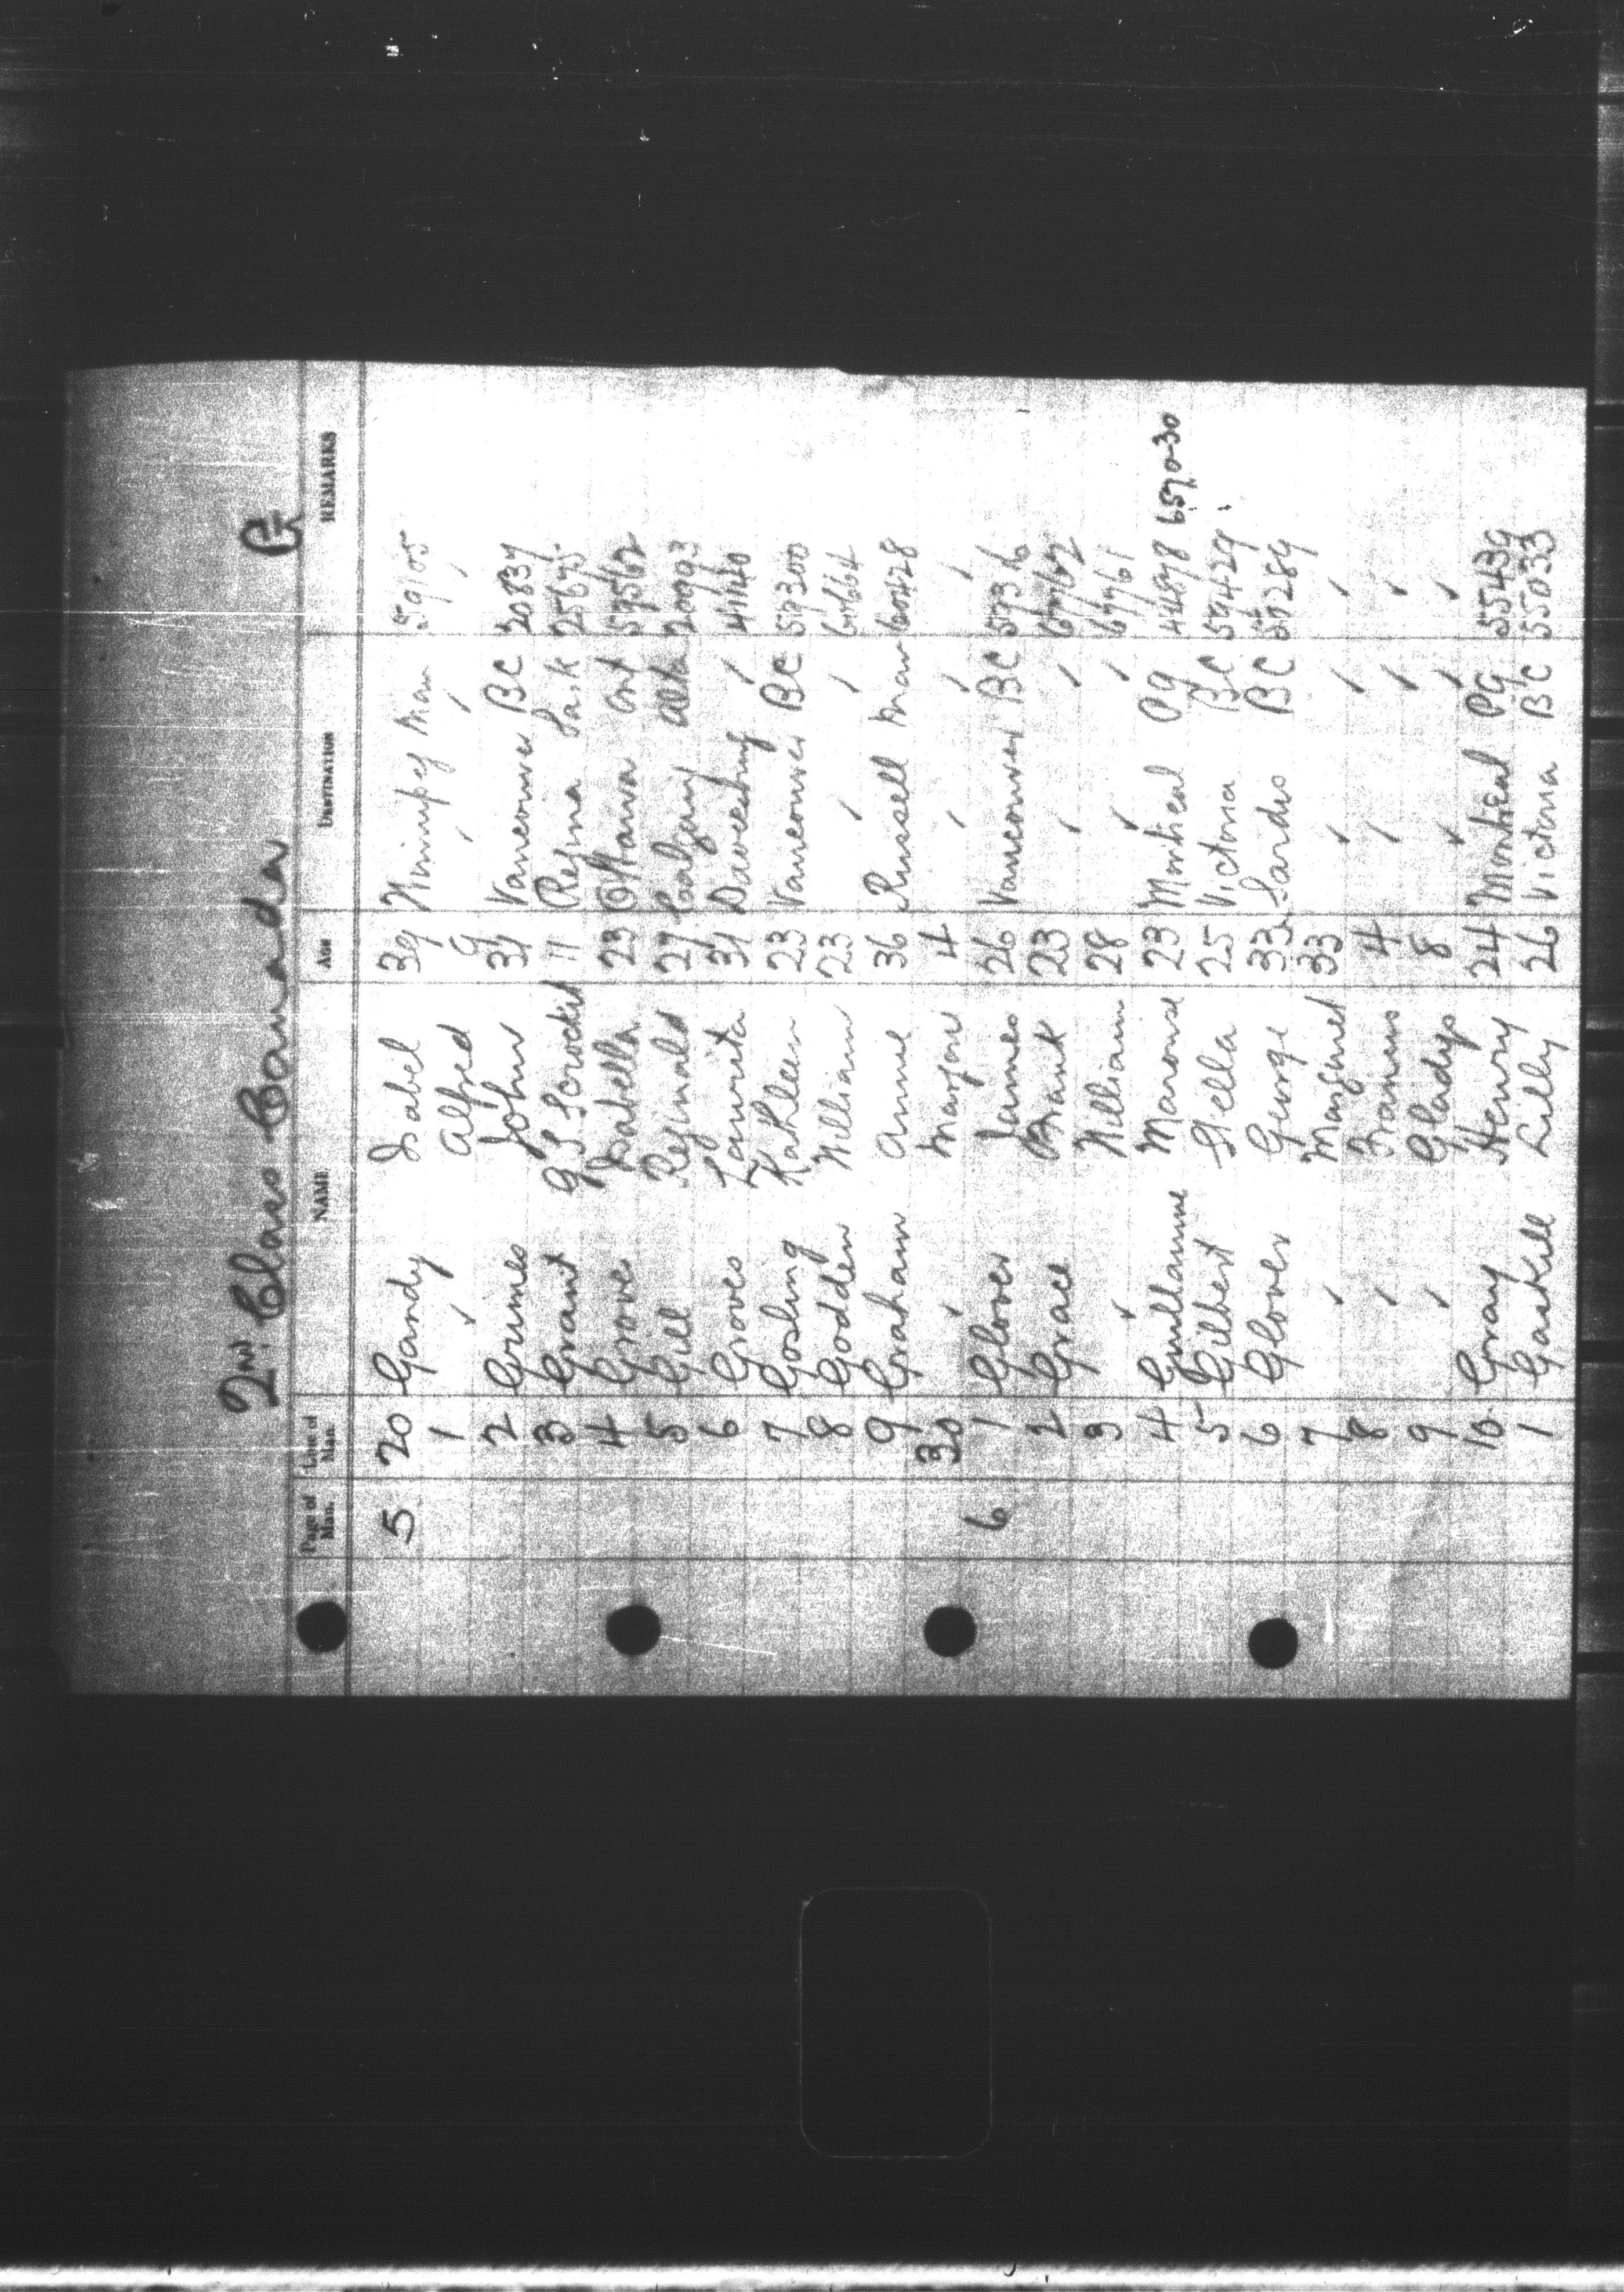 2nd Class Canada
Page of Man. Line of Man. NAME AGE DESTINATION REMARKS
5 20 Gandy Isabel 39 Winnipeg Man 59105
1 ✓ Alfred 9 ✓ ✓ ✓
2 Grimes John 34 Vancouver BC 20837
3 Grant 11 Regina Sask
4 Grove Isabella 23 Ottawa Ont 59562
5 Gill Reginald 27 Calgary Alta
6 Groves 31 ✓ 41140
7 Gosling Kathleen 23 Vancouver BC 59300
8 Godden William 23 ✓ ✓ 60664
9 Graham Annie 36 Russell Man 60428
30 ✓ Marjory 4 ✓ ✓ ✓
6 1 Glover James 26 Vancouver BC
2 Grace Frank 23 ✓ ✓
3 ✓ William 28 ✓ ✓
4 23 Montreal PQ
5 Gilbert Stella 25 Victoria BC 59429
6 Glover George 33 Sardis BC
7 ✓ Margaret 33 ✓ ✓ ✓
8 ✓ Francis 4 ✓ ✓ ✓
9 ✓ Gladys 8 ✓ ✓ ✓
10 Gray Henry 24 Montreal PQ 55439
1 Gaskell Lilly 26 Victoria BC 55033